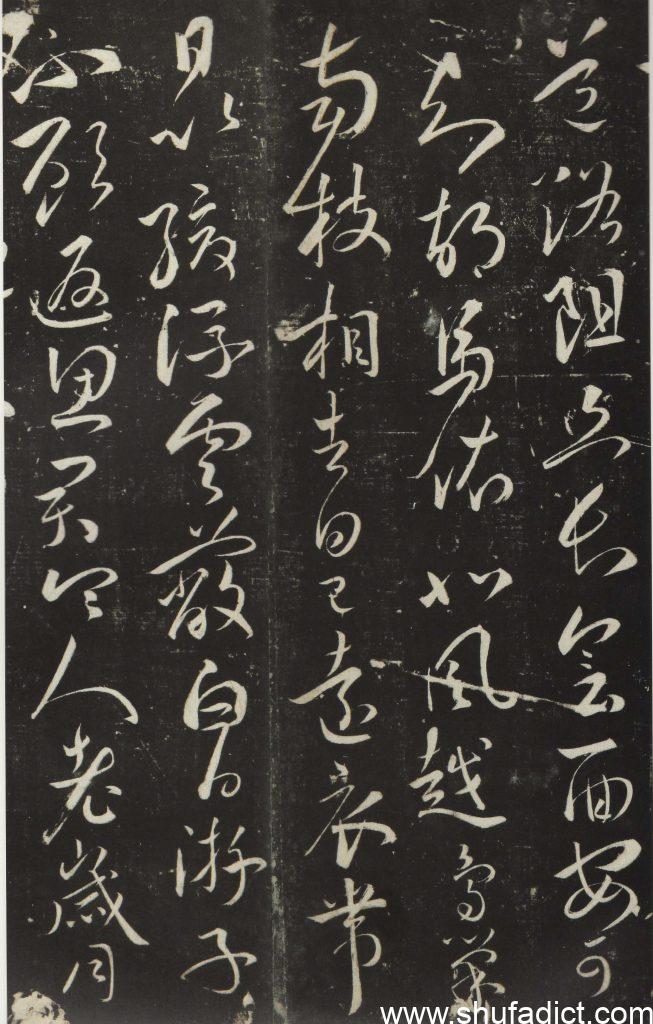 道路阻且長會面安可
知胡馬依北風越鳥巢
南枝相去日已遠衣帶
日以緩浮雲蔽白日游子
不顧返思君令人老歲月
www.shufadict.com